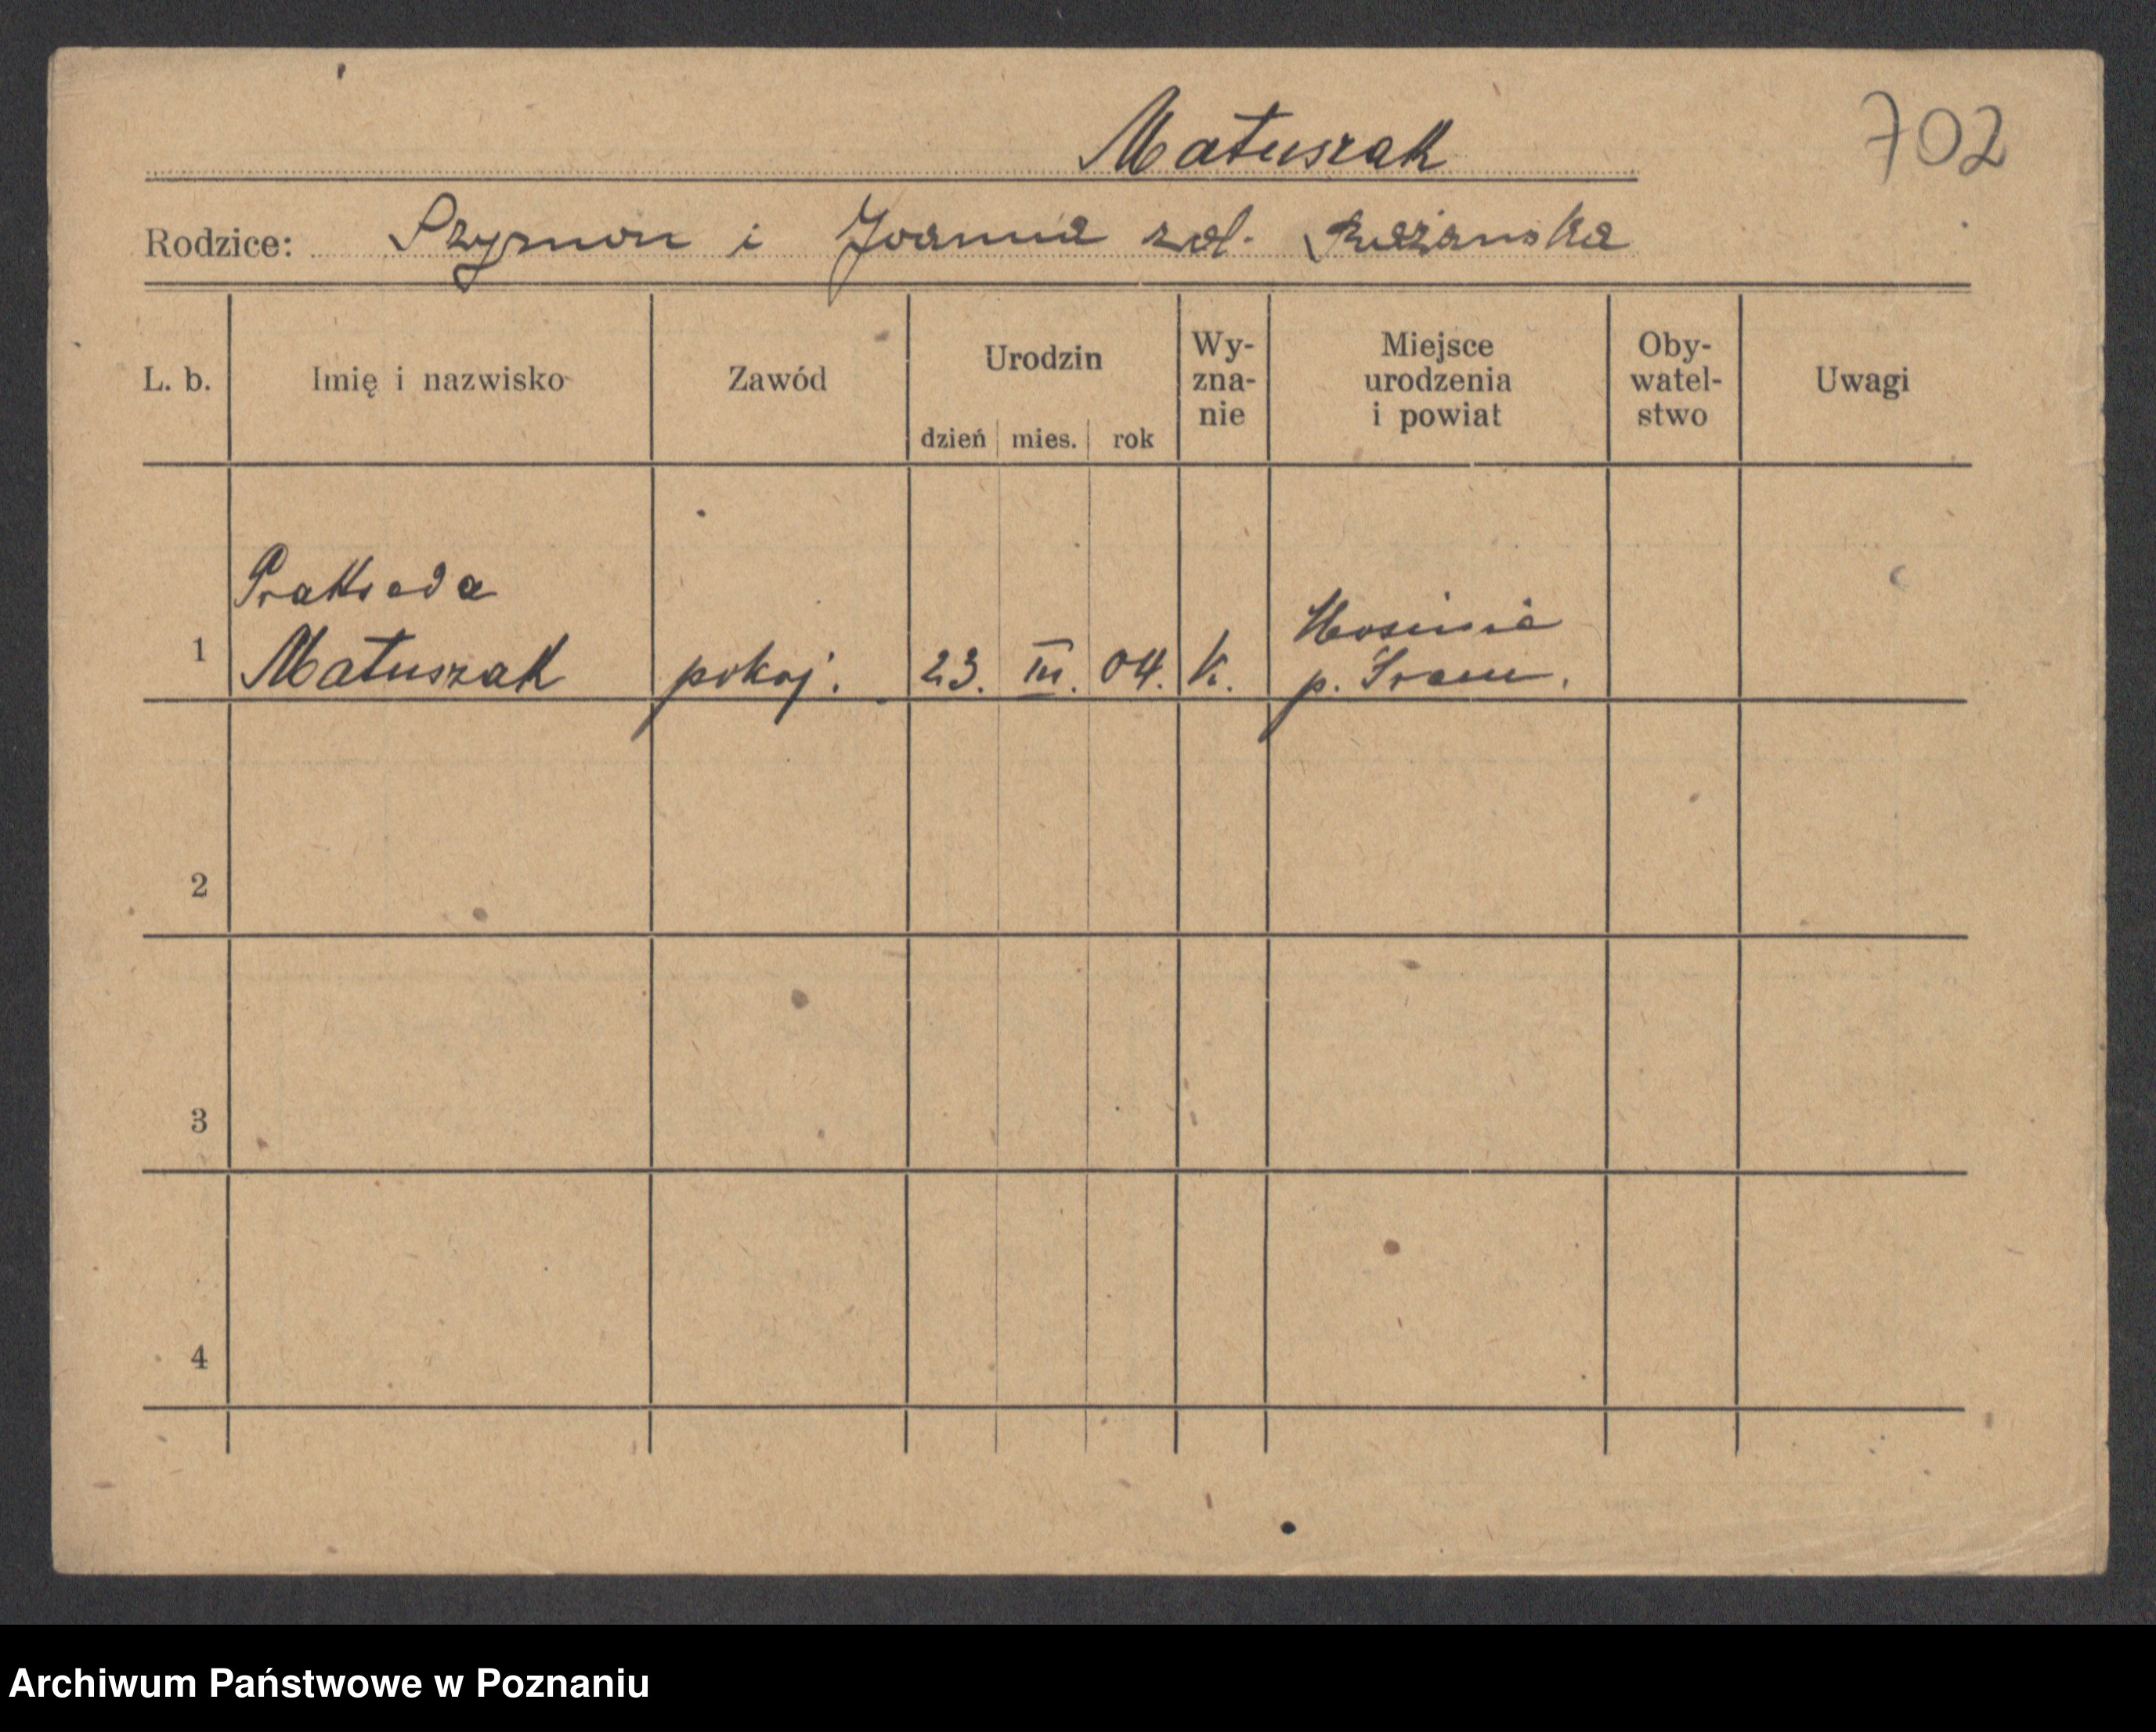 Matuszak
702
Rodzice: Szymon i Joanna
L. b.
Imię i nazwisko
Zawód
Urodzin
dzień mies. rok
Wy-
zna-
nie
Miejsce
urodzenia
i powiat
Oby-
watel-
stwo
Uwagi
Prakseda
1 Matuszak pokoj. 23. III. 04. K. p. Śrem.
2
3
4
Archiwum Państwowe w Poznaniu